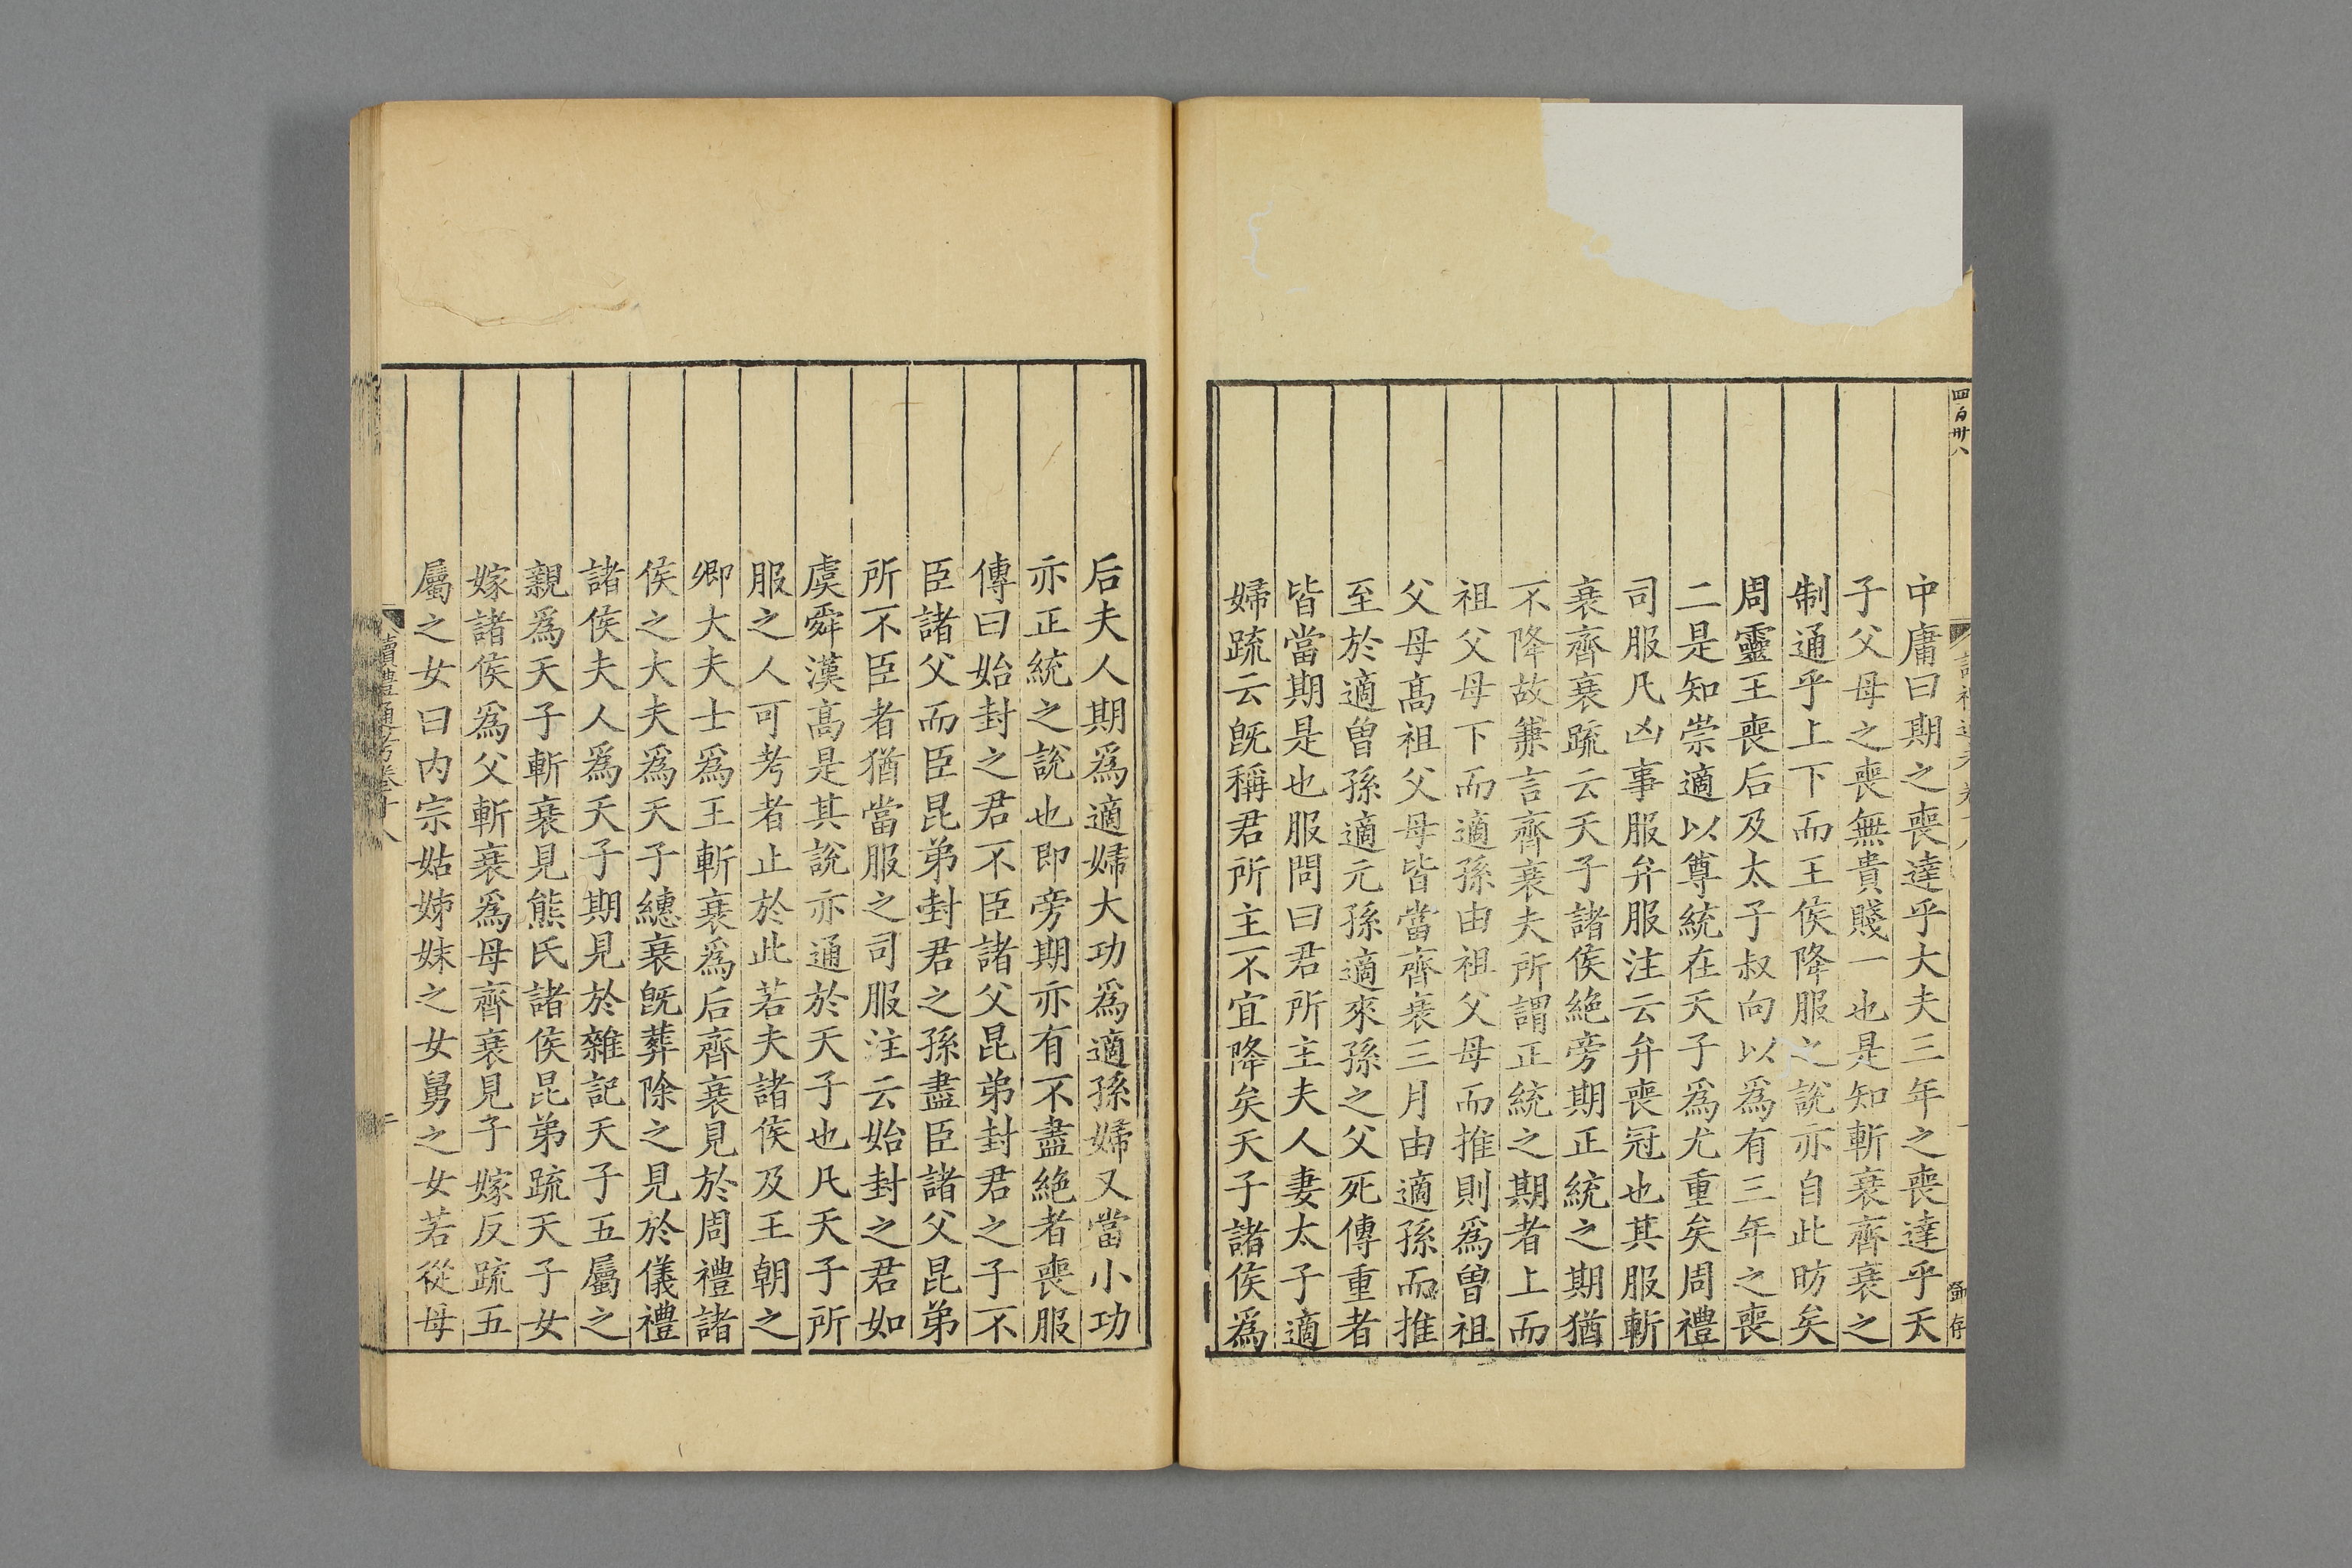 四百卅八
鄧存
中庸曰期之喪達乎大夫三年之喪達乎天
子父母之喪無貴賤一也是知斬衰齊衰之
制通乎上下而王侯降服之說亦自此昉矣
周靈王喪后及太子叔向以爲有三年之喪
二是知崇適以尊統在天子爲尤重矣周禮
司服凡凶事服弁服注云弁喪冠也其服斬
衰齊衰疏云天子諸侯絶旁期正統之期猶
不降故兼言齊衰夫所謂正統之期者上而
祖父母下而適孫由祖父母而推則爲曾祖
父母高祖父母皆當齊衰三月由適孫而推
至於適曾孫適元孫適來孫之父死傳重者
皆當期是也服問曰君所主夫人妻太子適
婦疏云旣稱君所主不宜降矣天子諸侯爲
后夫人期爲適婦大功爲適孫婦又當小功
亦正統之說也即旁期亦有不盡絶者喪服
傳曰始封之君不臣諸父昆弟封君之子不
臣諸父而臣昆弟封君之孫盡臣諸父昆弟
所不臣者猶當服之司服注云始封之君如
虞舜漢高是其說亦通於天子也凡天子所
服之人可考者止於此若夫諸侯及王朝之
卿大夫士爲王斬衰爲后齊衰見於周禮諸
侯之大夫爲天子繐衰旣葬除之見於儀禮
諸侯夫人爲天子期見於雜記天子五屬之
親爲天子斬衰見熊氏諸侯昆弟疏天子女
嫁諸侯爲父斬衰爲母齊衰見子嫁反疏五
屬之女曰内宗姑姊妹之女舅之女若從母
讀禮通考卷十八